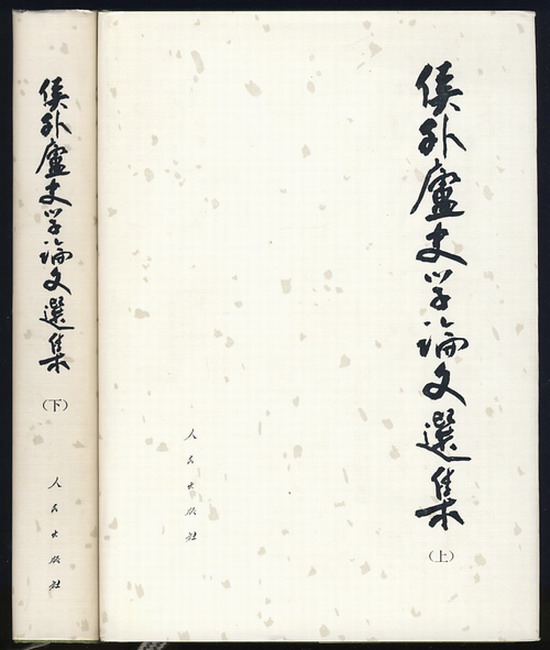 侯外廬史学論文選集
（上）
人民出版社
侯外廬史学論文選集
（下）
人民出版社